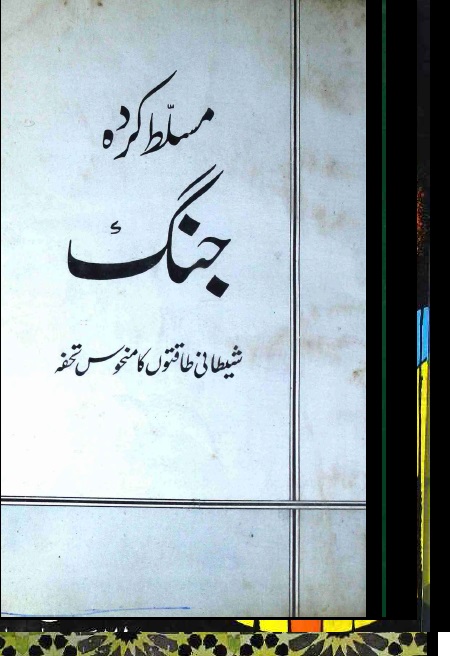 مسلّط کردہ
جنگ
شیطانی طاقتوں کا منحوس تحفہ